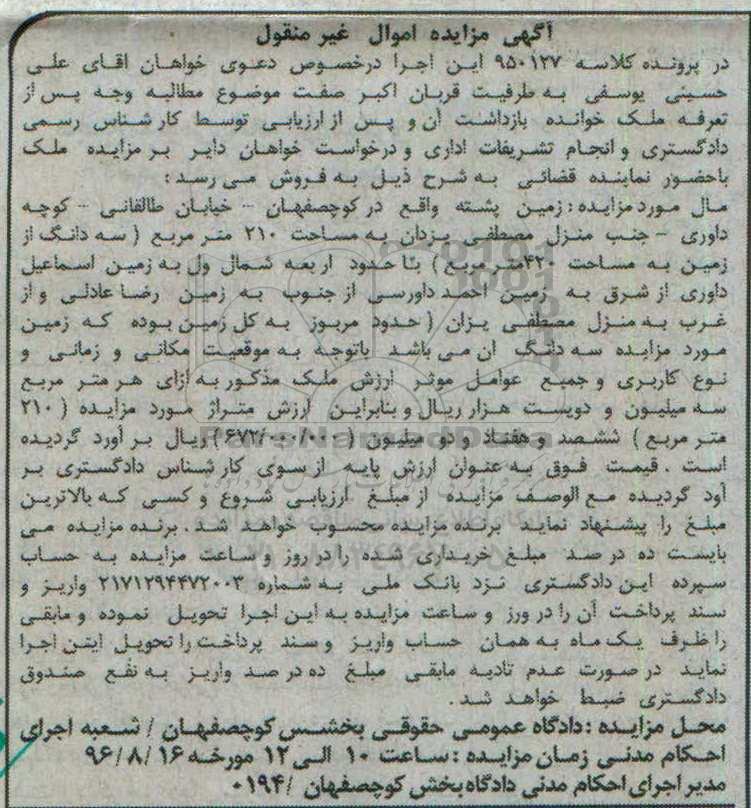 آگهی مزایده اموال غیر منقول
در پرونده کلاسه ۹۵۰۱۲۷ این اجرا درخصوص دعوی خواهان اقای علی
حسینی یوسفی به طرفیت قربان اکبر صفت موضوع مطالبه وجه پس از
تعرفه ملک خوانده بازداشت آن و پس از ارزیابی توسط کارشناس رسمی
دادگستری و انجام تشریفات اداری و درخواست خواهان دایر بر مزایده ملک
باحضور نماینده قضائی به شرح ذیل به فروش می رسد :
مال مورد مزایده : زمین پشته واقع در کوچصفهان - خیابان طالقانی - کوچه
داوری - جنب منزل مصطفی یزدان به مساحت ۲۱۰ متر مربع ( سه دانگ از
زمین به مساحت ۴۲۰متر مربع ) بنا حدود اربعه شمال ول به زمین اسماعیل
داوری از شرق به زمین احمد داورسی از جنوب به زمین رضا عادلی و از
غرب به منزل مصطفی یزان ( حدود مربوز به کل زمین بوده که زمین
مورد مزایده سه دانگ ان می باشد باتوجه به موقعیت مکانی و زمانی و
نوع کاربری و جمیع عوامل موثر ارزش ملک مذکور به ازای هر متر مربع
سه میلیون و دویست هزار ریال و بنابراین ارزش متراژ مورد مزایده ( ۲۱۰
متر مربع ) ششصد و هفتاد و دو میلیون ( ۶۷۲/۰۰۰/۰۰۰ ) ریال بر آورد گردیده
است . قیمت فوق به عنوان ارزش پایه از سوی کارشناس دادگستری بر
آود گردیده مع الوصف مزایده از مبلغ ارزیابی شروع و کسی که بالاترین
مبلغ را پیشنهاد نماید برنده مزایده محسوب خواهد شد . برنده مزایده می
بایست ده در صد مبلغ خریداری شده را در روز و ساعت مزایده به حساب
سپرده این دادگستری نزد بانک ملی به شماره ۲۱۷۱۲۹۴۴۷۲۰۰۳ واریز و
سند پرداخت آن را در ورز و ساعت مزایده به این اجرا تحویل نموده و مابقی
را ظرف یک ماه به همان حساب واریز و سند پرداخت را تحویل ایتن اجرا
نماید در صورت عدم تادیه مابقی مبلغ ده در صد واریز به نفع صندوق
دادگستری ضبط خواهد شد .
محل مزایده : دادگاه عمومی حقوقی بخشس کوچصفهان / شعبه اجرای
احکام مدنی زمان مزایده : ساعت ۱۰ الی ۱۲ مورخه ۹۶/۸/۱۶
مدیر اجرای احکام مدنی دادگاه بخش کوچصفهان /۰۱۹۴
ParsNamadData